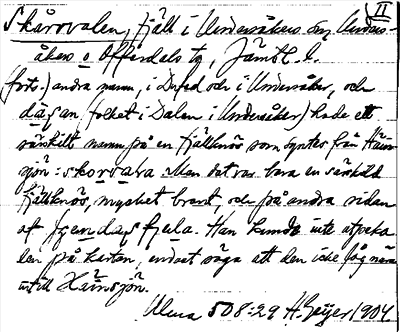 II
Skårvalen, fjäll i Undersåkers sn, Unders-
åkers o Offerdals tg, Jämtl. l.
(forts.) andra namn, i Dufed och i Undersåker, och
dạsan (folket i Dalen i Undersåker) hade ett
särskilt namn på en fjällknös som syntes från Häin-
sjön: skorvala. Men det var bara en särskild
fjällknös, mycket brant, och på andra sidan
af fjäla. Han kunde inte utpeka
den på kartan, endast säga att den icke låg nära
intill Häinsjön.
Ulma 508:29 H. Geijer 1904